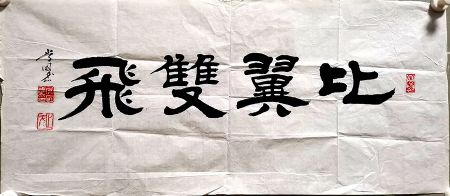 比翼雙飛